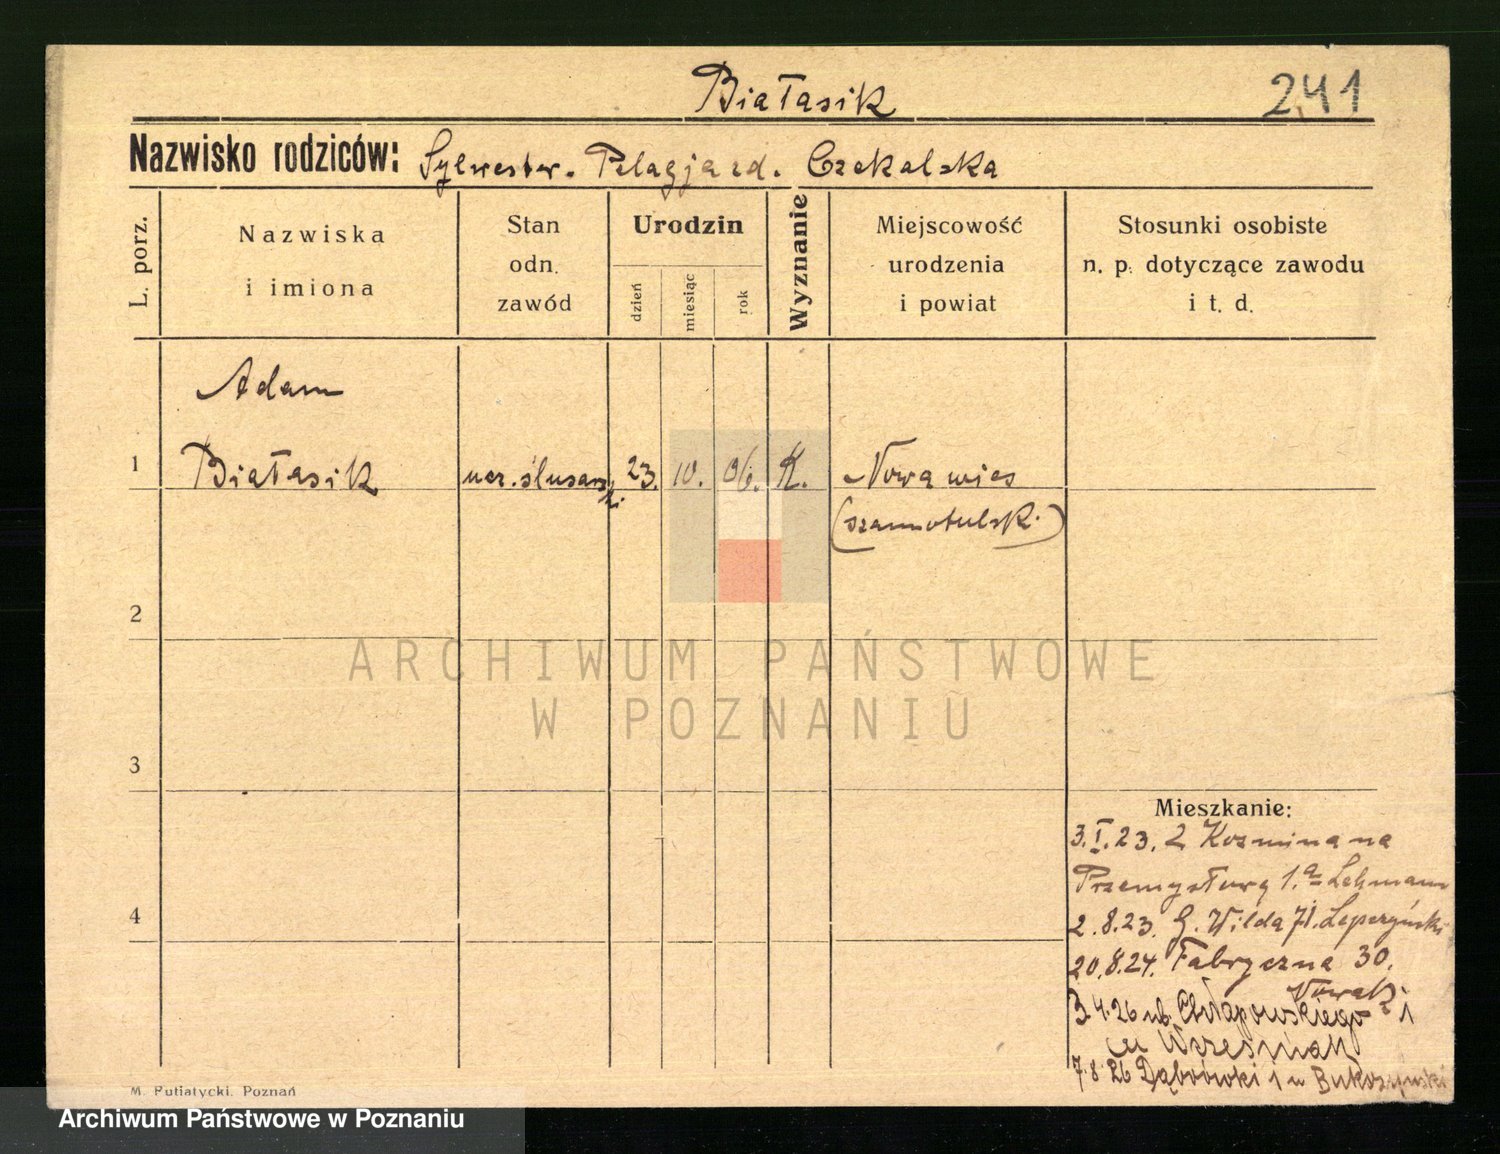 Białasik
241
Nazwisko rodziców: Sylwester. Pelagja zd. Czekalska
L. porz.
Nazwiska
i imiona
Stan
odn.
zawód
Urodzin
dzień
miesiąc
rok
Wyznanie
Miejscowość
urodzenia
i powiat
Stosunki osobiste
n. p. dotyczące zawodu
i t. d.
Adam
1 Białasik ucz. ślusarski. 23. 10. 06. K. Nowa wies
(szamotulsk.)
2
ARCHIWUM PAŃSTWOWE
W POZNANIU
3
Mieszkanie:
3.I.23. z Kozmina na
Przemysłową 1.a Lehmann
4
2.8.23. G. Wilda 71.
20.8.24. Fabryczna 30.
Nowak
3.4.26 ub. Chłapowskiego 1
u Wrzesniak
7.8.26 Dąbrówki 1 u
M. Putiatycki. Poznań
Archiwum Państwowe w Poznaniu